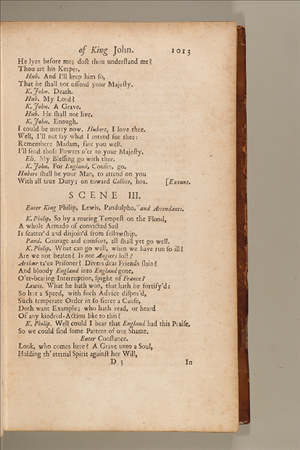 of King John. 1013
He lyes before me; dost thou understand me?
Thou art his Keeper.
Hub. And I'll keep him so,
That he shall not offend your Majesty.
K. John. Death.
Hub. My Lord?
K. John. A Grave.
Hub. He shall not live.
K. John. Enough.
I could be merry now. Hubert, I love thee,
Well, I'll not say what I intend for thee:
Remember: Madam, fare you well.
I'll send those Powers o'er to your Majesty.
Eli. My Blessing go with thee.
K. John. For England, Cousin, go.
Hubert shall be your Man, to attend on you
With all true Duty; on toward Callice, hoa. [Exeunt.
SCENE III.
Enter King Philip, Lewis, Pandulpho, and Attendants.
K. Philip. So by a roaring Tempest on the Flood,
A whole Armado of convicted Sail
Is scatter'd and disjoin'd from fellowship.
Pand. Courage and comfort, all shall yet go well.
K. Philip. What can go well, when we have run so ill?
Are we not beaten? Is not Angiers lost?
Arthur ta'en Prisoner? Divers dear Friends slain?
And bloody England into England gone,
O'er-bearing Interruption, spight of France?
Lewis. What he hath won, that hath he fortify'd:
So hot a Speed, with such Advice dispos'd,
Such temperate Order in so fierce a Cause,
Doth want Example; who hath read, or heard
Of any kindred-Action like to this?
K. Philip. Well could I bear that England had this Praise,
So we could find some Pattern of our Shame.
Enter Constance.
Look, who comes here? A Grave unto a Soul,
Holding th' eternal Spirit against her Will,
D 3 In